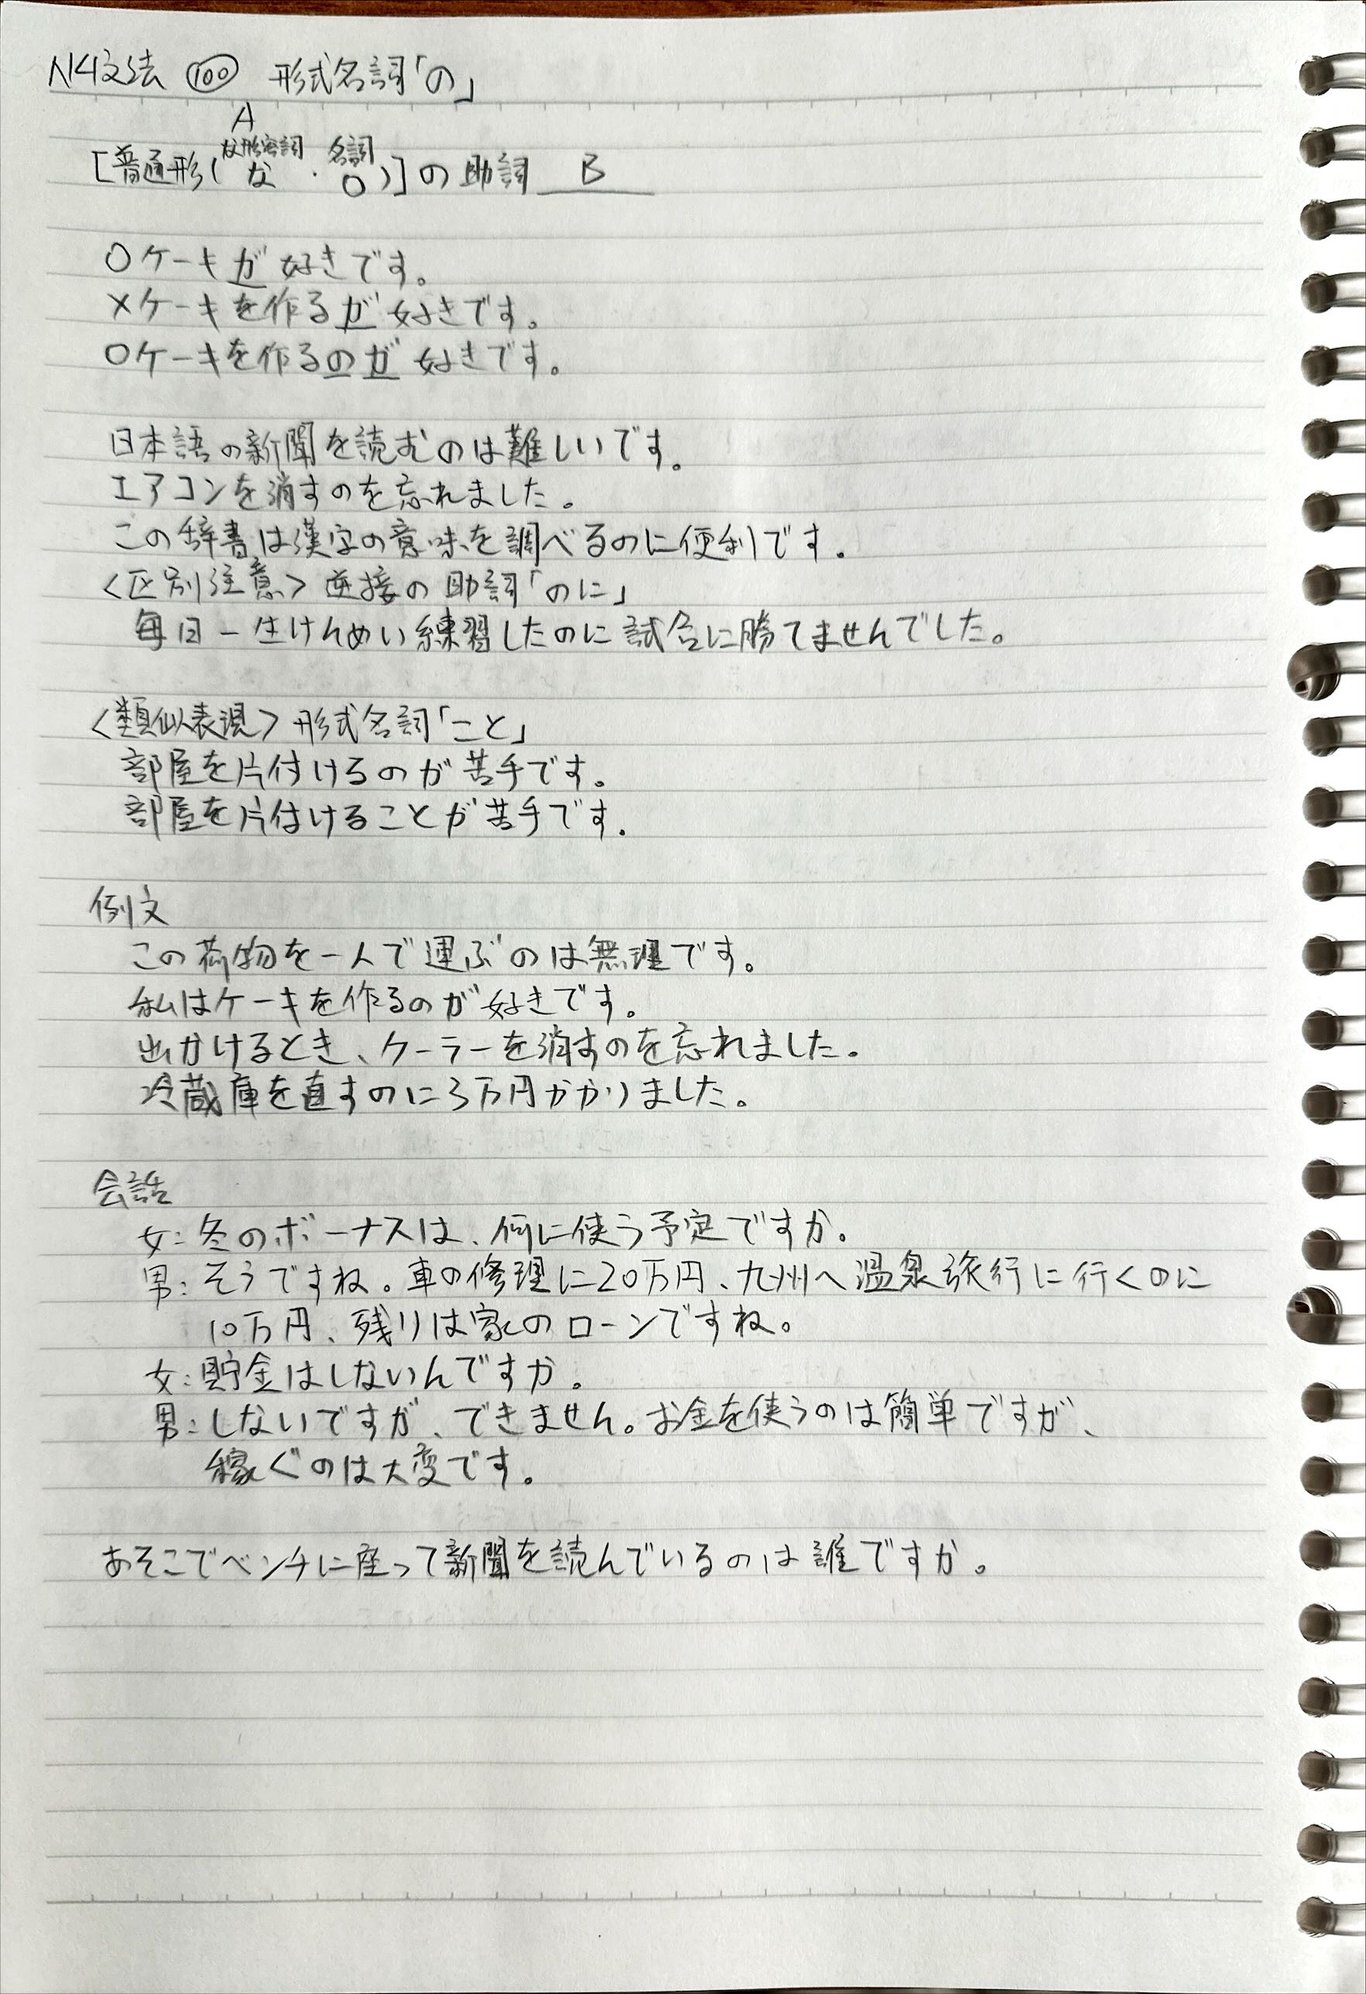 N4文法 100 形式名詞「の」
A
な形容詞 名詞
[普通形(な・○)]の助詞 B
○ケーキが好きです。
×ケーキを作るが好きです。
○ケーキを作るのが好きです。
日本語の新聞を読むのは難しいです。
エアコンを消すのを忘れました。
この辞書は漢字の意味を調べるのに便利です。
<区別注意>逆接の助詞「のに」
毎日一生けんめい練習したのに試合に勝てませんでした。
<類似表現>形式名詞「こと」
部屋を片付けるのが苦手です。
部屋を片付けることが苦手です。
例文
この荷物を一人で運ぶのは無理です。
私はケーキを作るのが好きです。
出かけるとき、クーラーを消すのを忘れました。
冷蔵庫を直すのに3万円かかりました。
会話
女:冬のボーナスは、何に使う予定ですか。
男:そうですね。車の修理に20万円、九州へ温泉旅行に行くのに
10万円、残りは家のローンですね。
女:貯金はしないんですか。
男:しないですが、できません。お金を使うのは簡単ですが、
稼ぐのは大変です。
あそこでベンチに座って新聞を読んでいるのは誰ですか。